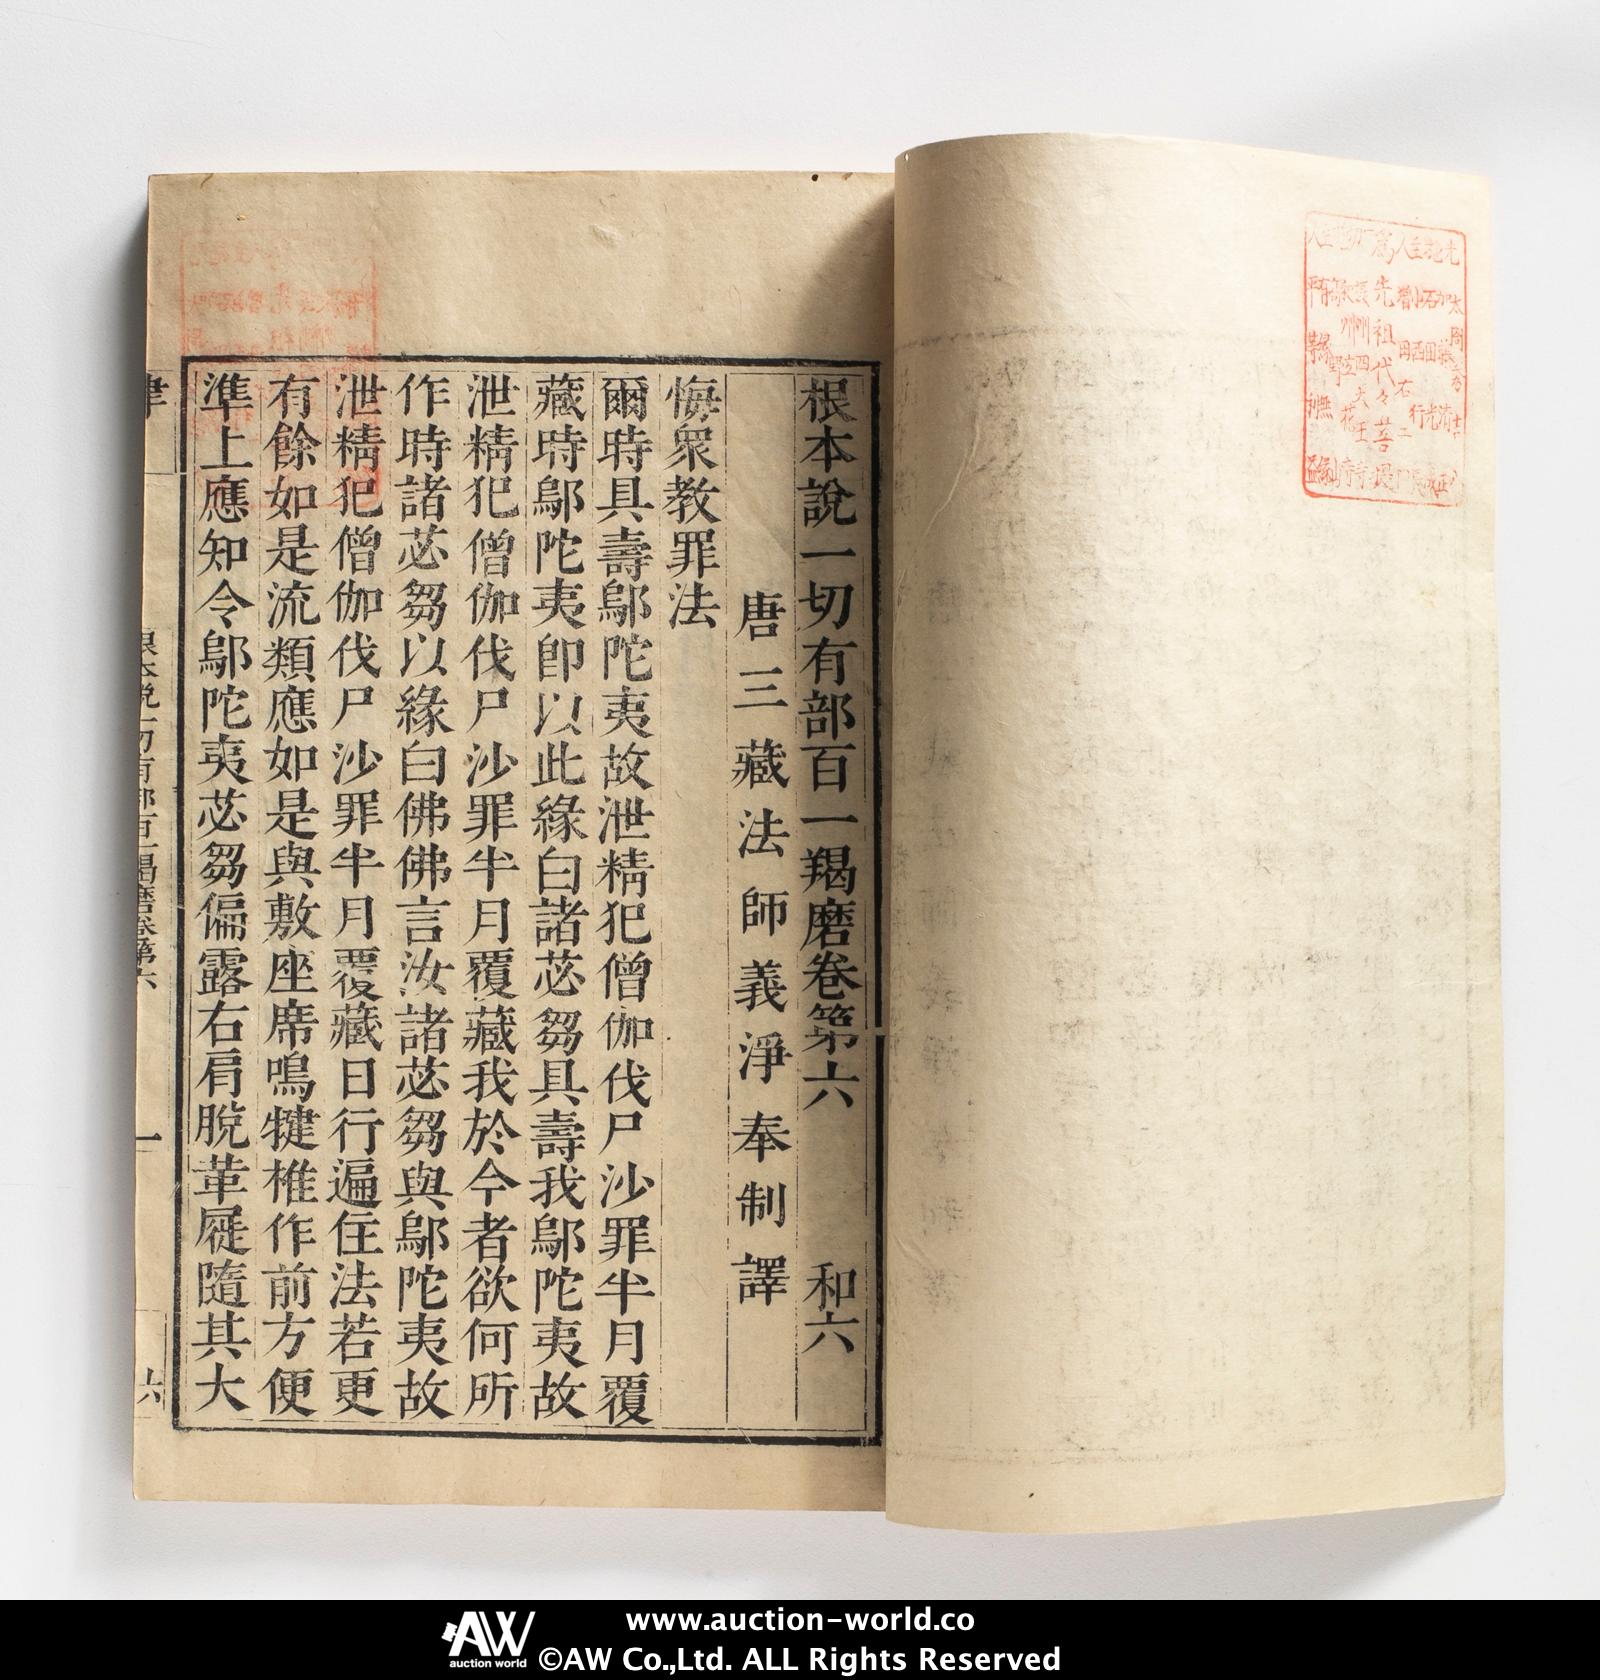 根本說一切有部百一羯磨卷第六 和六
唐三藏法師義淨奉制譯
悔眾教罪法
爾時具壽鄔陀夷故泄精犯僧伽伐尸沙罪半月覆
藏時鄔陀夷即以此緣白諸苾芻具壽我鄔陀夷故
泄精犯僧伽伐尸沙罪半月覆藏我於今者欲何所
作時諸苾芻以緣白佛佛言汝諸苾芻與鄔陀夷故
泄精犯僧伽伐尸沙罪半月覆藏日行遍住法若更
有餘如是流類應如是與敷座席鳴犍椎作前方便
準上應知令鄔陀夷苾芻偏露右肩脫革屣隨其大
律
根本說一切有部百一羯磨卷第六
一
六
為先祖代々菩提
AW
auction world
www.auction-world.co
©AW Co.,Ltd. ALL Rights Reserved